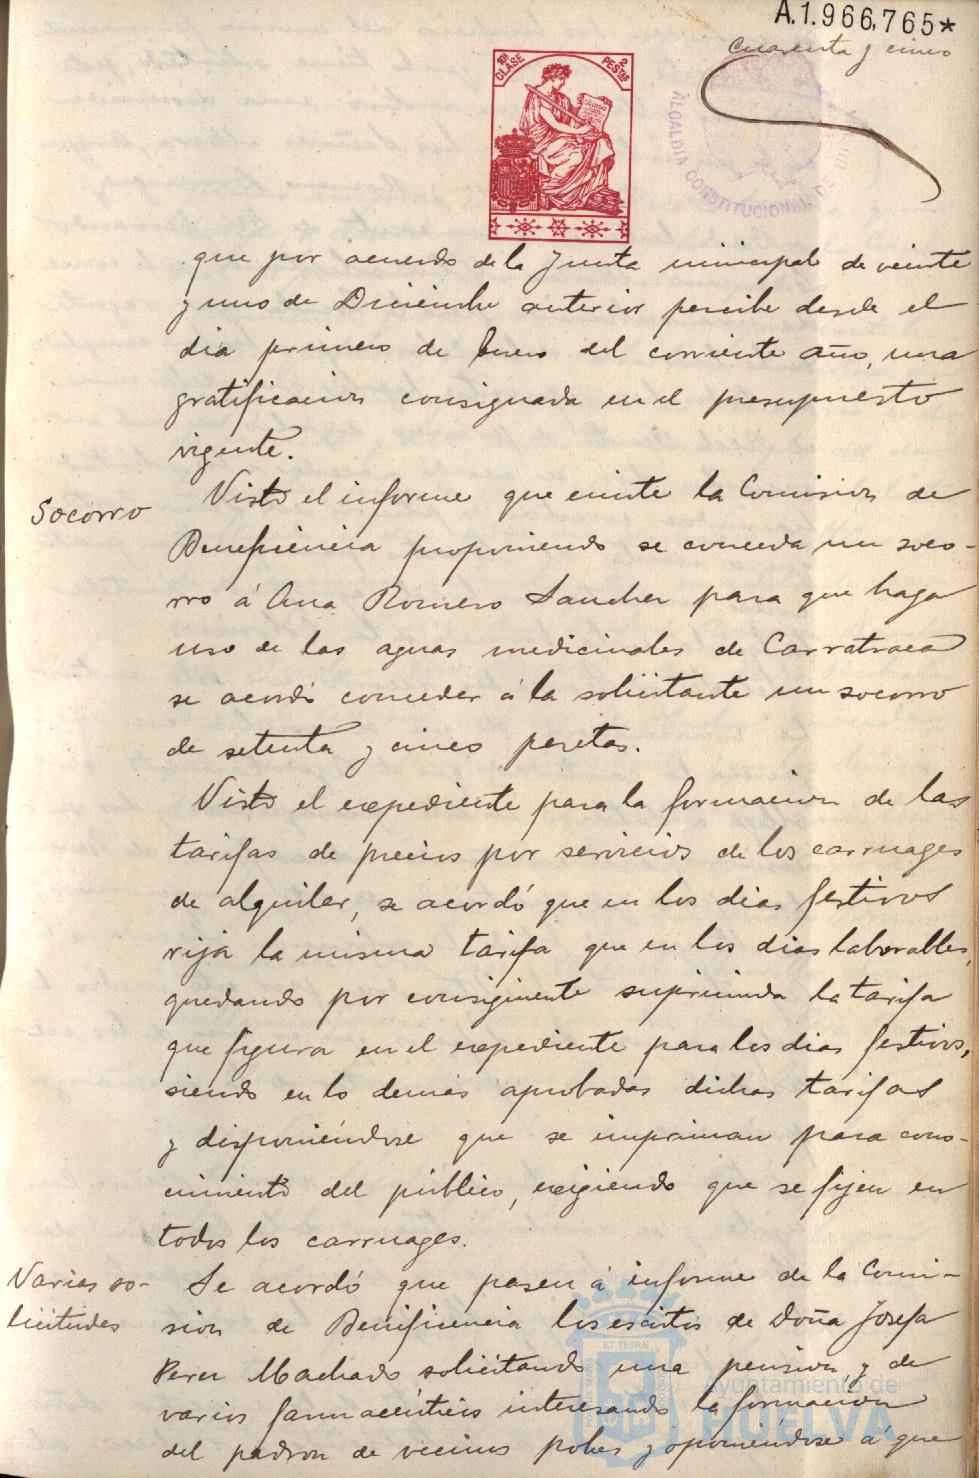 A.1.966,765*
Cuarenta y cinco
10ª CLASE
2 PESETAS
ALCALDIA CONSTITUCIONAL DE
que por acuerdo de la Junta municipal de veinte
y uno de Diciembre anterior percibe desde el
dia primero de Enero del corriente año, una
gratificacion consignada en el presupuesto
vigente.
Socorro
Visto el informe que emite la Comision de
Beneficiencia proponiendo se conceda un soco-
rro á Ana Romero Sanchez para que haga
uso de las aguas medicinales de Carratraca
se acordó conceder á la solicitante un socorro
de setenta y cinco pesetas.
Visto el expediente para la formacion de las
tarifas de precios por servicios de los carruages
de alquiler, se acordó que en los dias festivos
rija la misma tarifa que en los dias laborables,
quedando por consiguiente suprimida la tarifa
que figura en el expediente para los dias festivos,
siendo en lo demás aprobadas dichas tarifas
y disponiéndose que se impriman para cono-
cimiento del público, exigiendo que se fijen en
todos los carruages.
Varias so-
licitudes
Se acordó que pasen á informe de la Comi-
sion de Beneficencia los escritos de Doña Josefa
Perez Machado solicitando una pension, y de
varios farmacéuticos interesando la formacion
del padron de vecinos pobres y oponiéndose á que
Ayuntamiento de
HUELVA